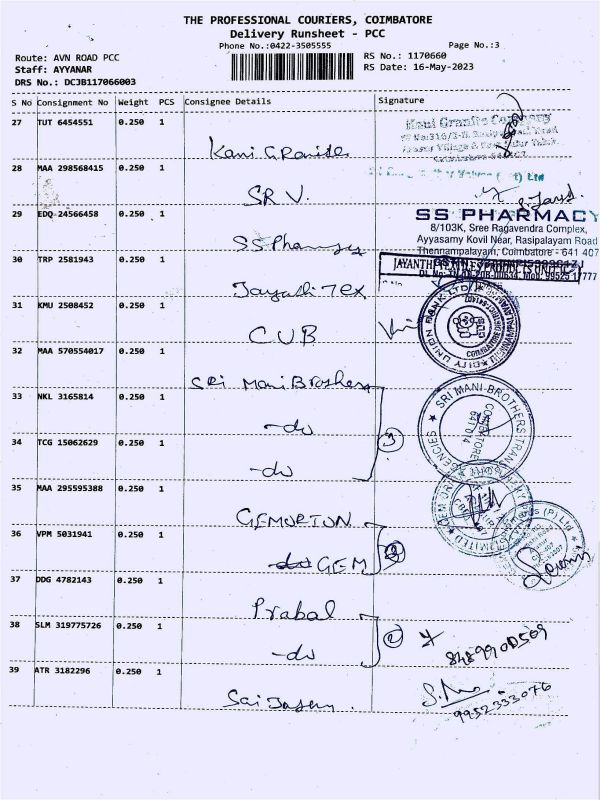 THE PROFESSIONAL COURIERS, COIMBATORE
Delivery Runsheet - PCC
Phone No.:0422-3505555
Page No.:3
Route: AVN ROAD PCC
Staff: AYYANAR
DRS No.: DCJB117066003
RS No.: 1170660
RS Date: 16-May-2023
S No Consignment No Weight PCS Consignee Details Signature
27 TUT 6454551 0.250 1
Kani Granides
Kani Granite Company
28 MAA 298568415 0.250 1
SR V.
29 EDQ 24566458 0.250 1
SS Pharmacy
SS PHARMACY
8/103K, Sree Ragavendra Complex,
Ayyasamy Kovil Near, Rasipalayam Road
Thennampalayam, Coimbatore - 641 407
30 TRP 2581943 0.250 1
Jayanthi Tex
31 KMU 2508452 0.250 1
CUB
CITY UNION BANK LTD
32 MAA 570554017 0.250 1
Sri Mani Brothers
33 NKL 3165814 0.250 1
-do
3
SRI MANI BROTHERS TRANS AGENCIES
COIMBATORE
641 014
34 TCG 15062629 0.250 1
-do
35 MAA 295595388 0.250 1
GEMORION
36 VPM 5031941 0.250 1
GEM
2
37 DDG 4782143 0.250 1
Prabal
38 SLM 319775726 0.250 1
-do
2
39 ATR 3182296 0.250 1
9952333076